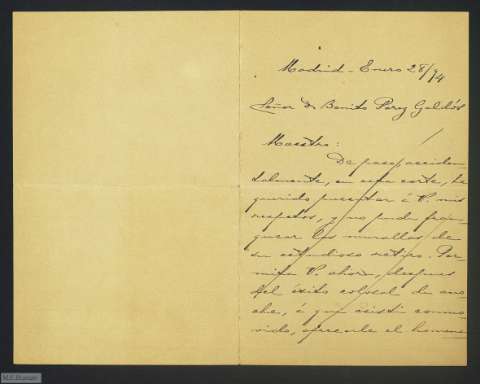 Madrid - Enero 28/94
Señor D. Benito Perez Galdós
Maestro:
De paso acciden-
talmente, en esta corte, he
querido presentar á V. mis
respetos, y no pude fran-
quear las murallas de
su estudioso retiro. Per-
mita V. ahora, despues
del éxito colosal de ano-
che, á que asistí conmo-
vido, ofrecerle el homena-